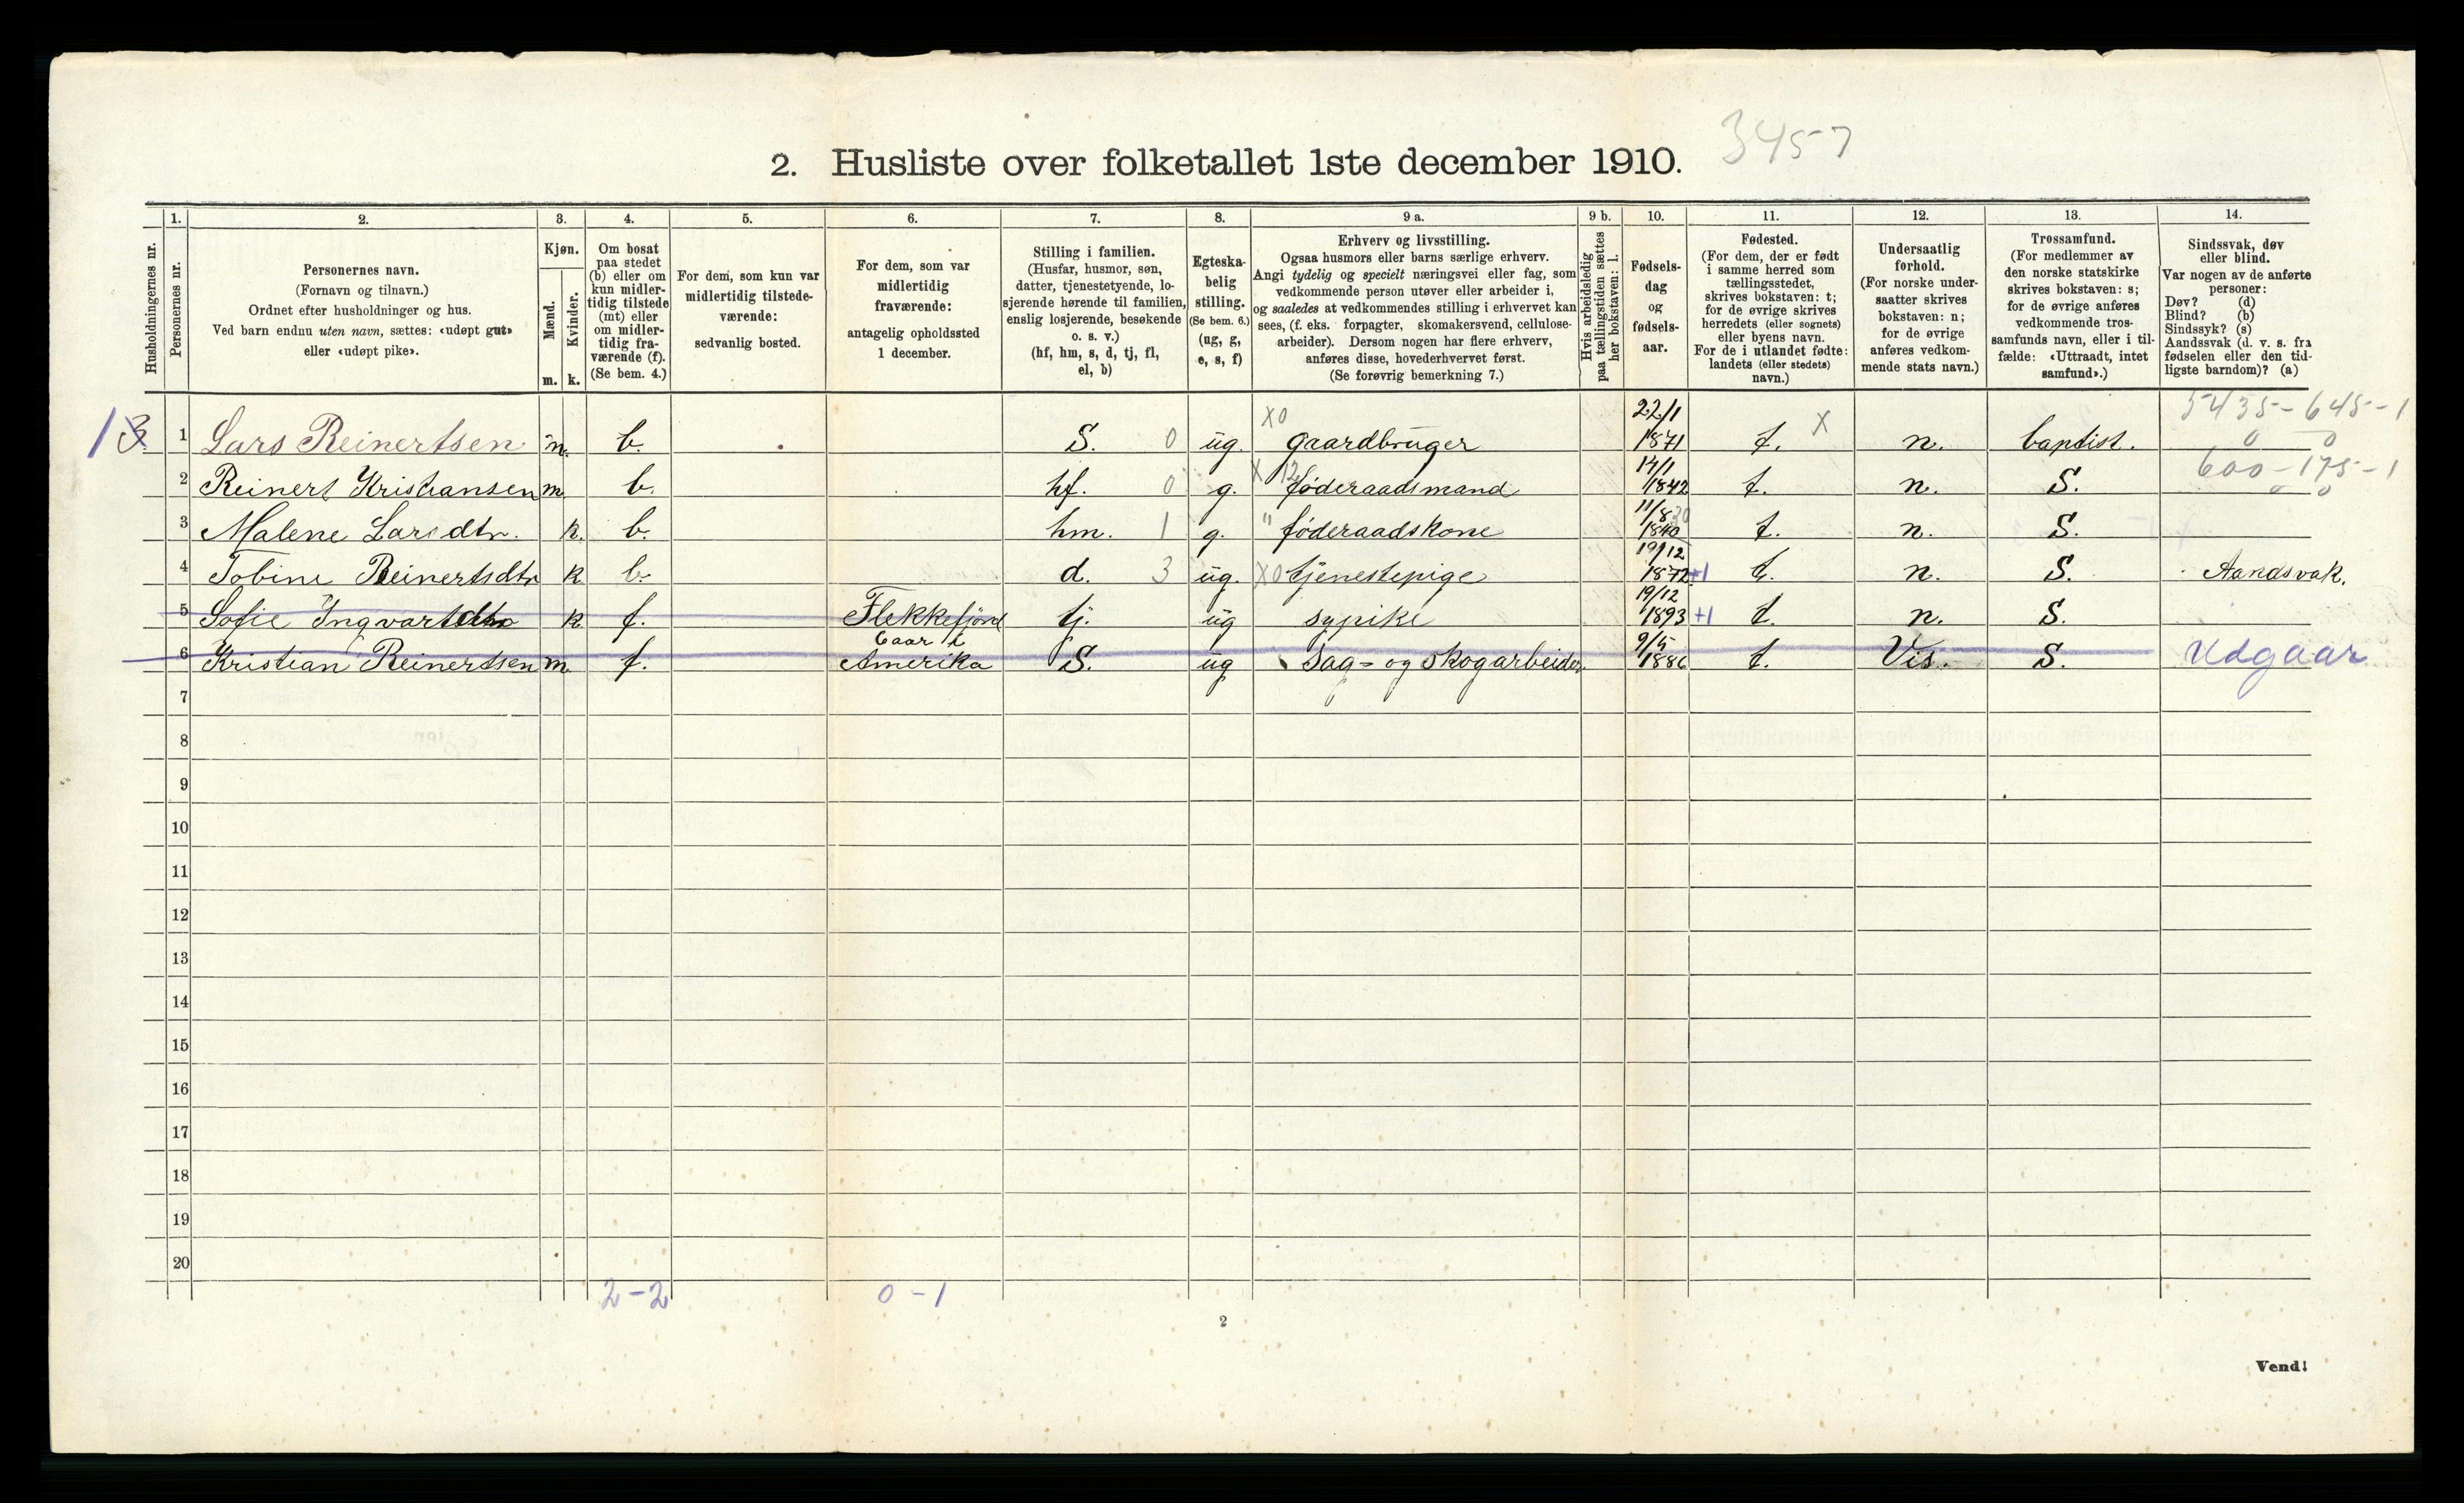 3457
2. Husliste over folketallet 1ste december 1910.
Husholdningernes nr.
1.
Personernes nr.
2.
Personernes navn.
(Fornavn og tilnavn.)
Ordnet efter husholdninger og hus.
Ved barn endnu uten navn, sættes: «udøpt gut»
eller «udøpt pike».
3.
Kjøn.
Mænd.
Kvinder.
m. k.
4.
Om bosat
paa stedet
(b) eller om
kun midler-
tidig tilstede
(mt) eller
om midler-
tidig fra-
værende (f).
(Se bem. 4.)
5.
For dem, som kun var
midlertidig tilstede-
værende:
sedvanlig bosted.
6.
For dem, som var
midlertidig
fraværende:
antagelig opholdssted
1 december.
7.
Stilling i familien.
(Husfar, husmor, søn,
datter, tjenestetyende, lo-
sjerende hørende til familien,
enslig losjerende, besøkende
o. s. v.)
(hf, hm, s, d, tj, fl,
el, b)
8.
Egteska-
belig
stilling.
(Se bem. 6.)
(ug, g,
e, s, f)
9 a.
Erhverv og livsstilling.
Ogsaa husmors eller barns særlige erhverv.
Angi tydelig og specielt næringsvei eller fag, som
vedkommende person utøver eller arbeider i,
og saaledes at vedkommendes stilling i erhvervet kan
sees, (f. eks. forpagter, skomakersvend, cellulose-
arbeider). Dersom nogen har flere erhverv,
anføres disse, hovederhvervet først.
(Se forøvrig bemerkning 7.)
9 b.
Hvis arbeidsledig
paa tællingstiden sættes
her bokstaven: l.
10.
Fødsels-
dag
og
fødsels-
aar.
11.
Fødested.
(For dem, der er født
i samme herred som
tællingsstedet,
skrives bokstaven: t;
for de øvrige skrives
herredets (eller sognets)
eller byens navn.
For de i utlandet fødte:
landets (eller stedets)
navn.)
12.
Undersaatlig
forhold.
(For norske under-
saatter skrives
bokstaven: n;
for de øvrige
anføres vedkom-
mende stats navn.)
13.
Trossamfund.
(For medlemmer av
den norske statskirke
skrives bokstaven: s;
for de øvrige anføres
vedkommende tros-
samfunds navn, eller i til-
fælde: «Uttraadt, intet
samfund».)
14.
Sindssvak, døv
eller blind.
Var nogen av de anførte
personer:
Døv? (d)
Blind? (b)
Sindssyk? (s)
Aandssvak (d. v. s. fra
fødselen eller den tid-
ligste barndom)? (a)
13 1 Lars Reinertsen m. b. S. 0 ug. x0 gaardbruger 22/1 1871 t. x n. baptist. 5435-645-1 0 0
2 Reinert Kristiansen m b. hf. 0 g. x 12 føderaadsmand 14/1 1842 t. n. S. 600-175-1 0 0
3 Malene Larsdtr. k. b. hm. 1 g. " føderaadskone 11/8 1840 t. n. S.
4 Tobine Reinertsdtr k b. d. 3 ug. x0 tjenestepige 19/12 1872 +1 t. n. S. Aandsvak.
5 Sofie Ingvartsdtr k f. Flekkefjord tj. ug sypike 19/12 1893 +1 t. n. S.
6 Kristian Reinertsen m f. 6 aar i Amerika S. ug Sag- og skogarbeider 9/5 1886 t. Vis. S. Udgaar
7
8
9
10
11
12
13
14
15
16
17
18
19
20
2-2 0-1
2
Vend!